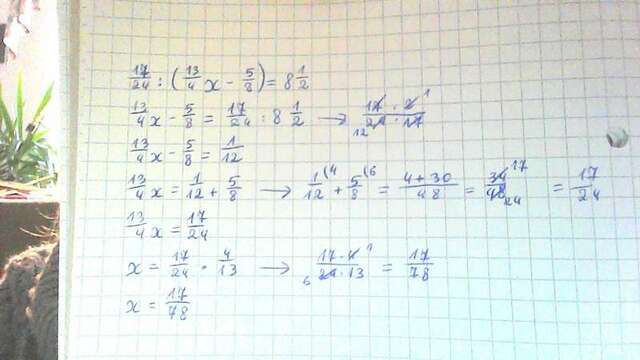 17/24 : (13/4 x - 5/8) = 8 1/2
13/4 x - 5/8 = 17/24 : 8 1/2 → 17 · 2 1 / 12 24 · 17
13/4 x - 5/8 = 1/12
13/4 x = 1/12 + 5/8 → 1/12 (4 + 5/8 (6 = 4+30/48 = 34 17/48 24 = 17/24
13/4 x = 17/24
x = 17/24 · 4/13 → 17 · 4 1 / 6 24 · 13 = 17/78
x = 17/78